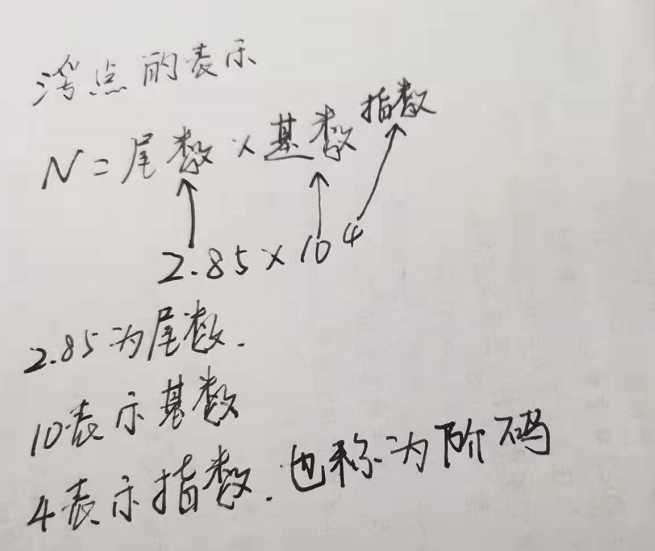 浮点的表示
N=尾数×基数指数
2.85×10⁴
2.85为尾数.
10表示基数
4表示指数.也称为阶码